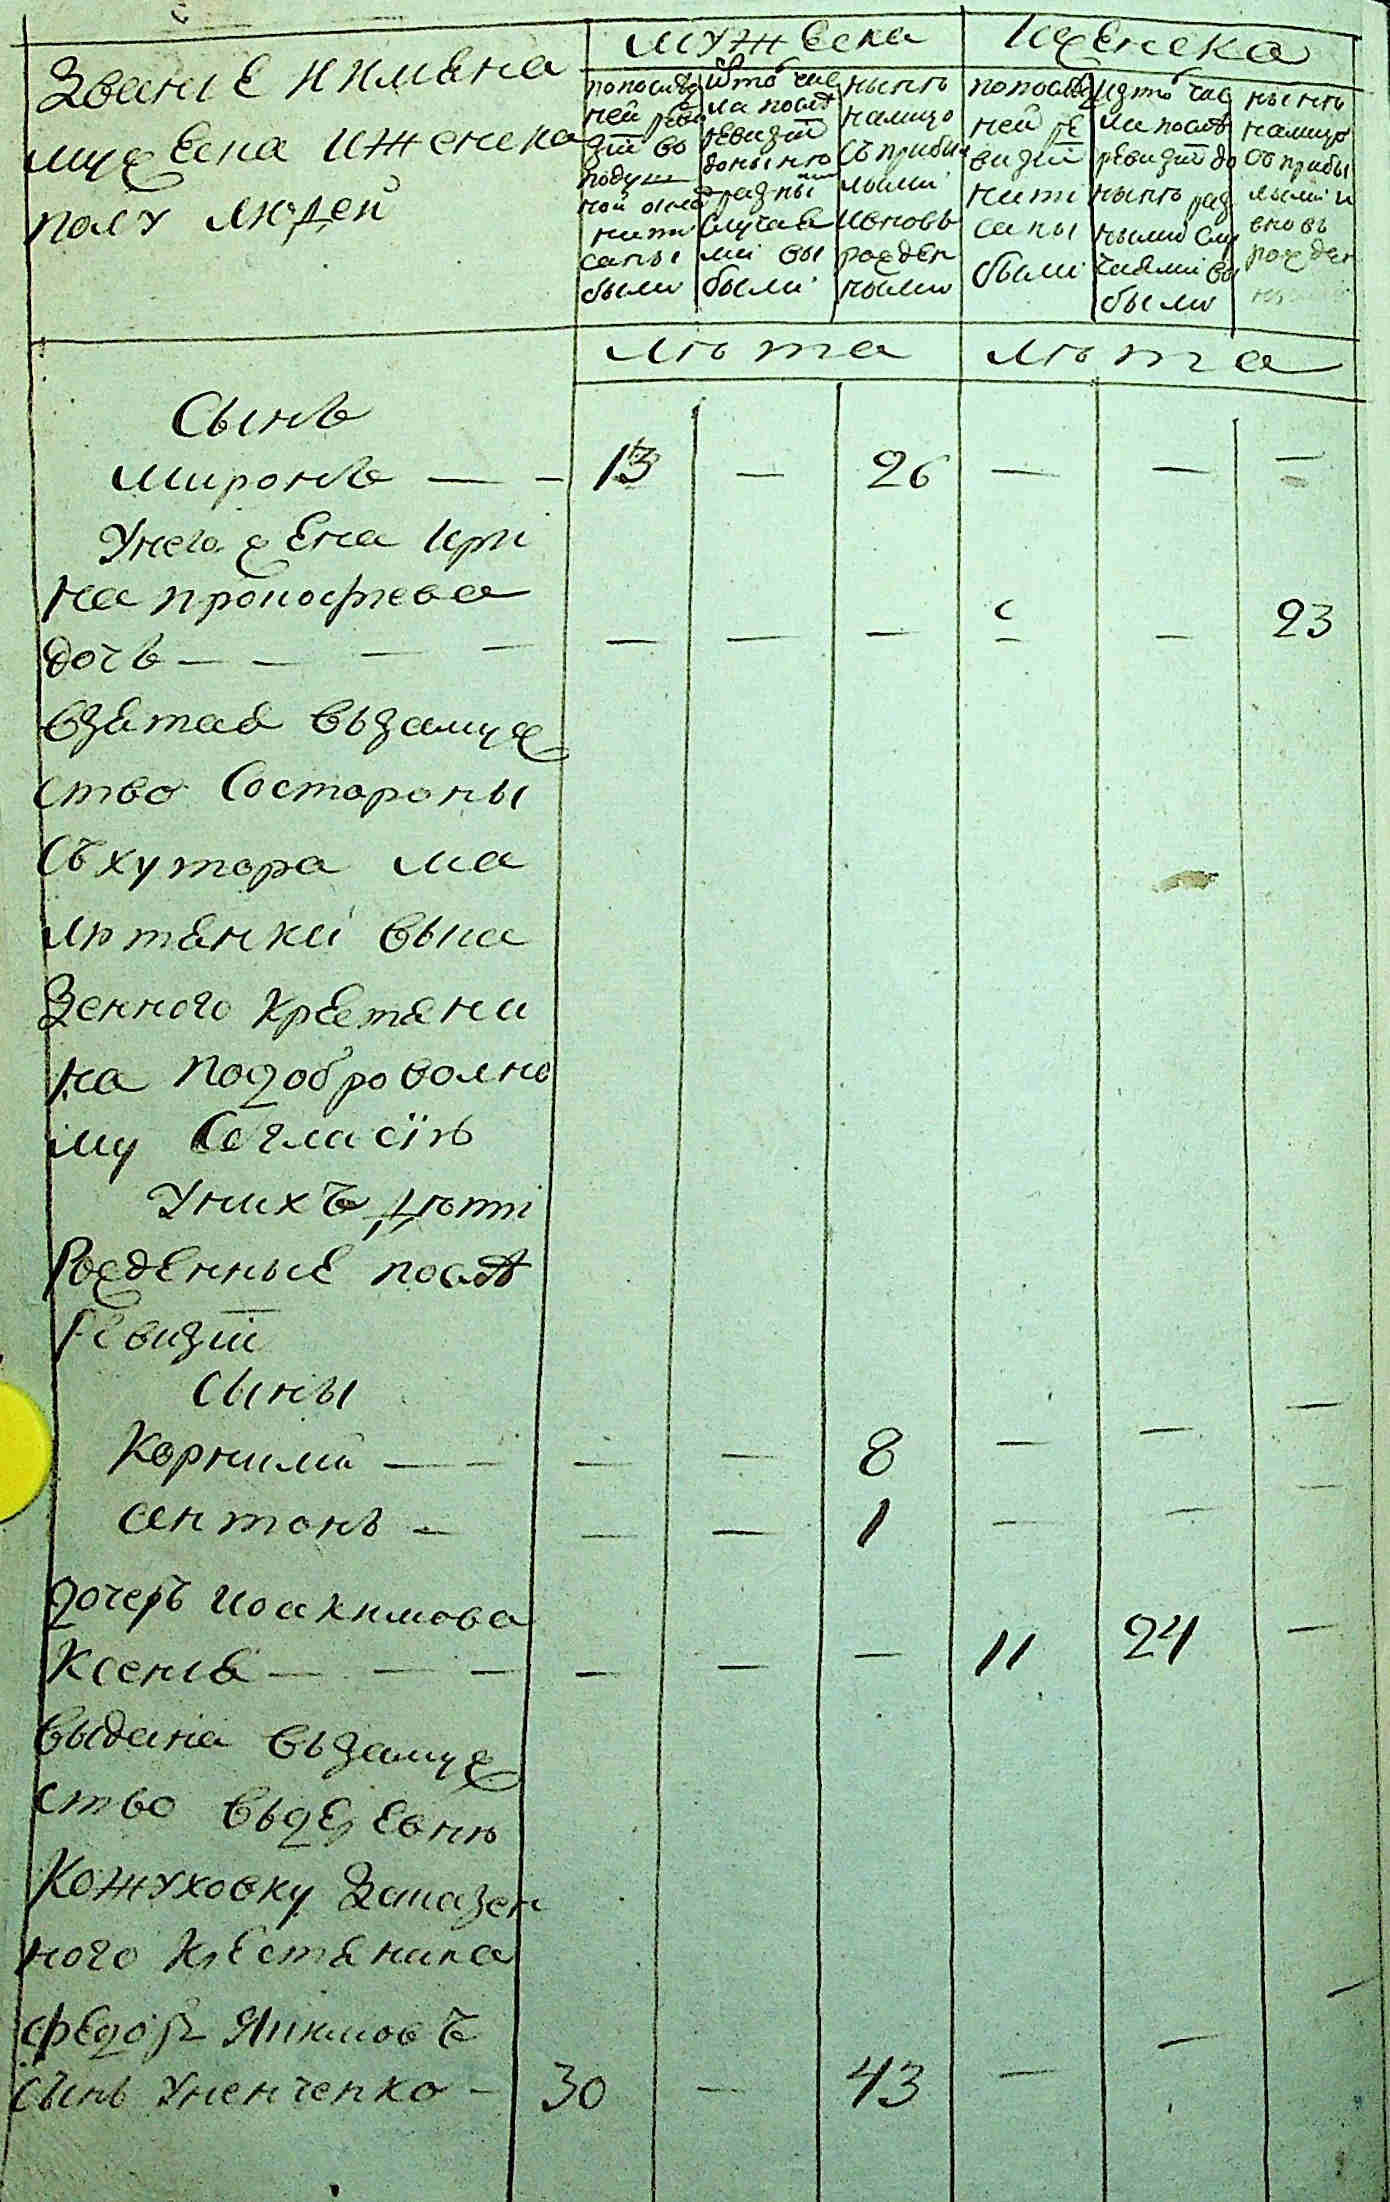 Званіе и имяна
мужеска и женска
полу людей
мужеска
женска
по послѣд
ней реви
зіи во
подуш
ной окла
написаны
были
изъ того чис
ла послѣ
ревизіи
до нынѣ
разны
случая
ми вы
были
нынѣ
налицо
съ прибы
лыми
и вновь
рожден
ными
по послѣд
ней ре
визіи
напи
саны
были
изъ того чис
ла послѣ
ревизіи до
нынѣ раз
ными слу
чаями вы
были
нынѣ
налицо
съ прибы
лыми и
вновь
рожден
ными
лѣта лѣта
Сынъ
Миронъ — — 13 — 26 — — —
У него жена Ири
на Прокофьева
дочь — — — — — — — — — 23
взятая взамуж
ство со стороны
съ хутора Ма
лютянки вына
зенного крестяни
на подоброволно
му согласію
У нихъ дѣти
рожденные послѣ
ревизіи
сыны
Корнилій — — — — 8 — — —
Антонъ — — — 1 — — —
дочерь Иоакимова
Ксенія — — — — — — 11 24 —
выдана взамуж
ство въ деревню
Кожуховку за казен
ного крестянина
Федоръ Якимовъ
сынъ Уненченко — 30 — 43 — — —